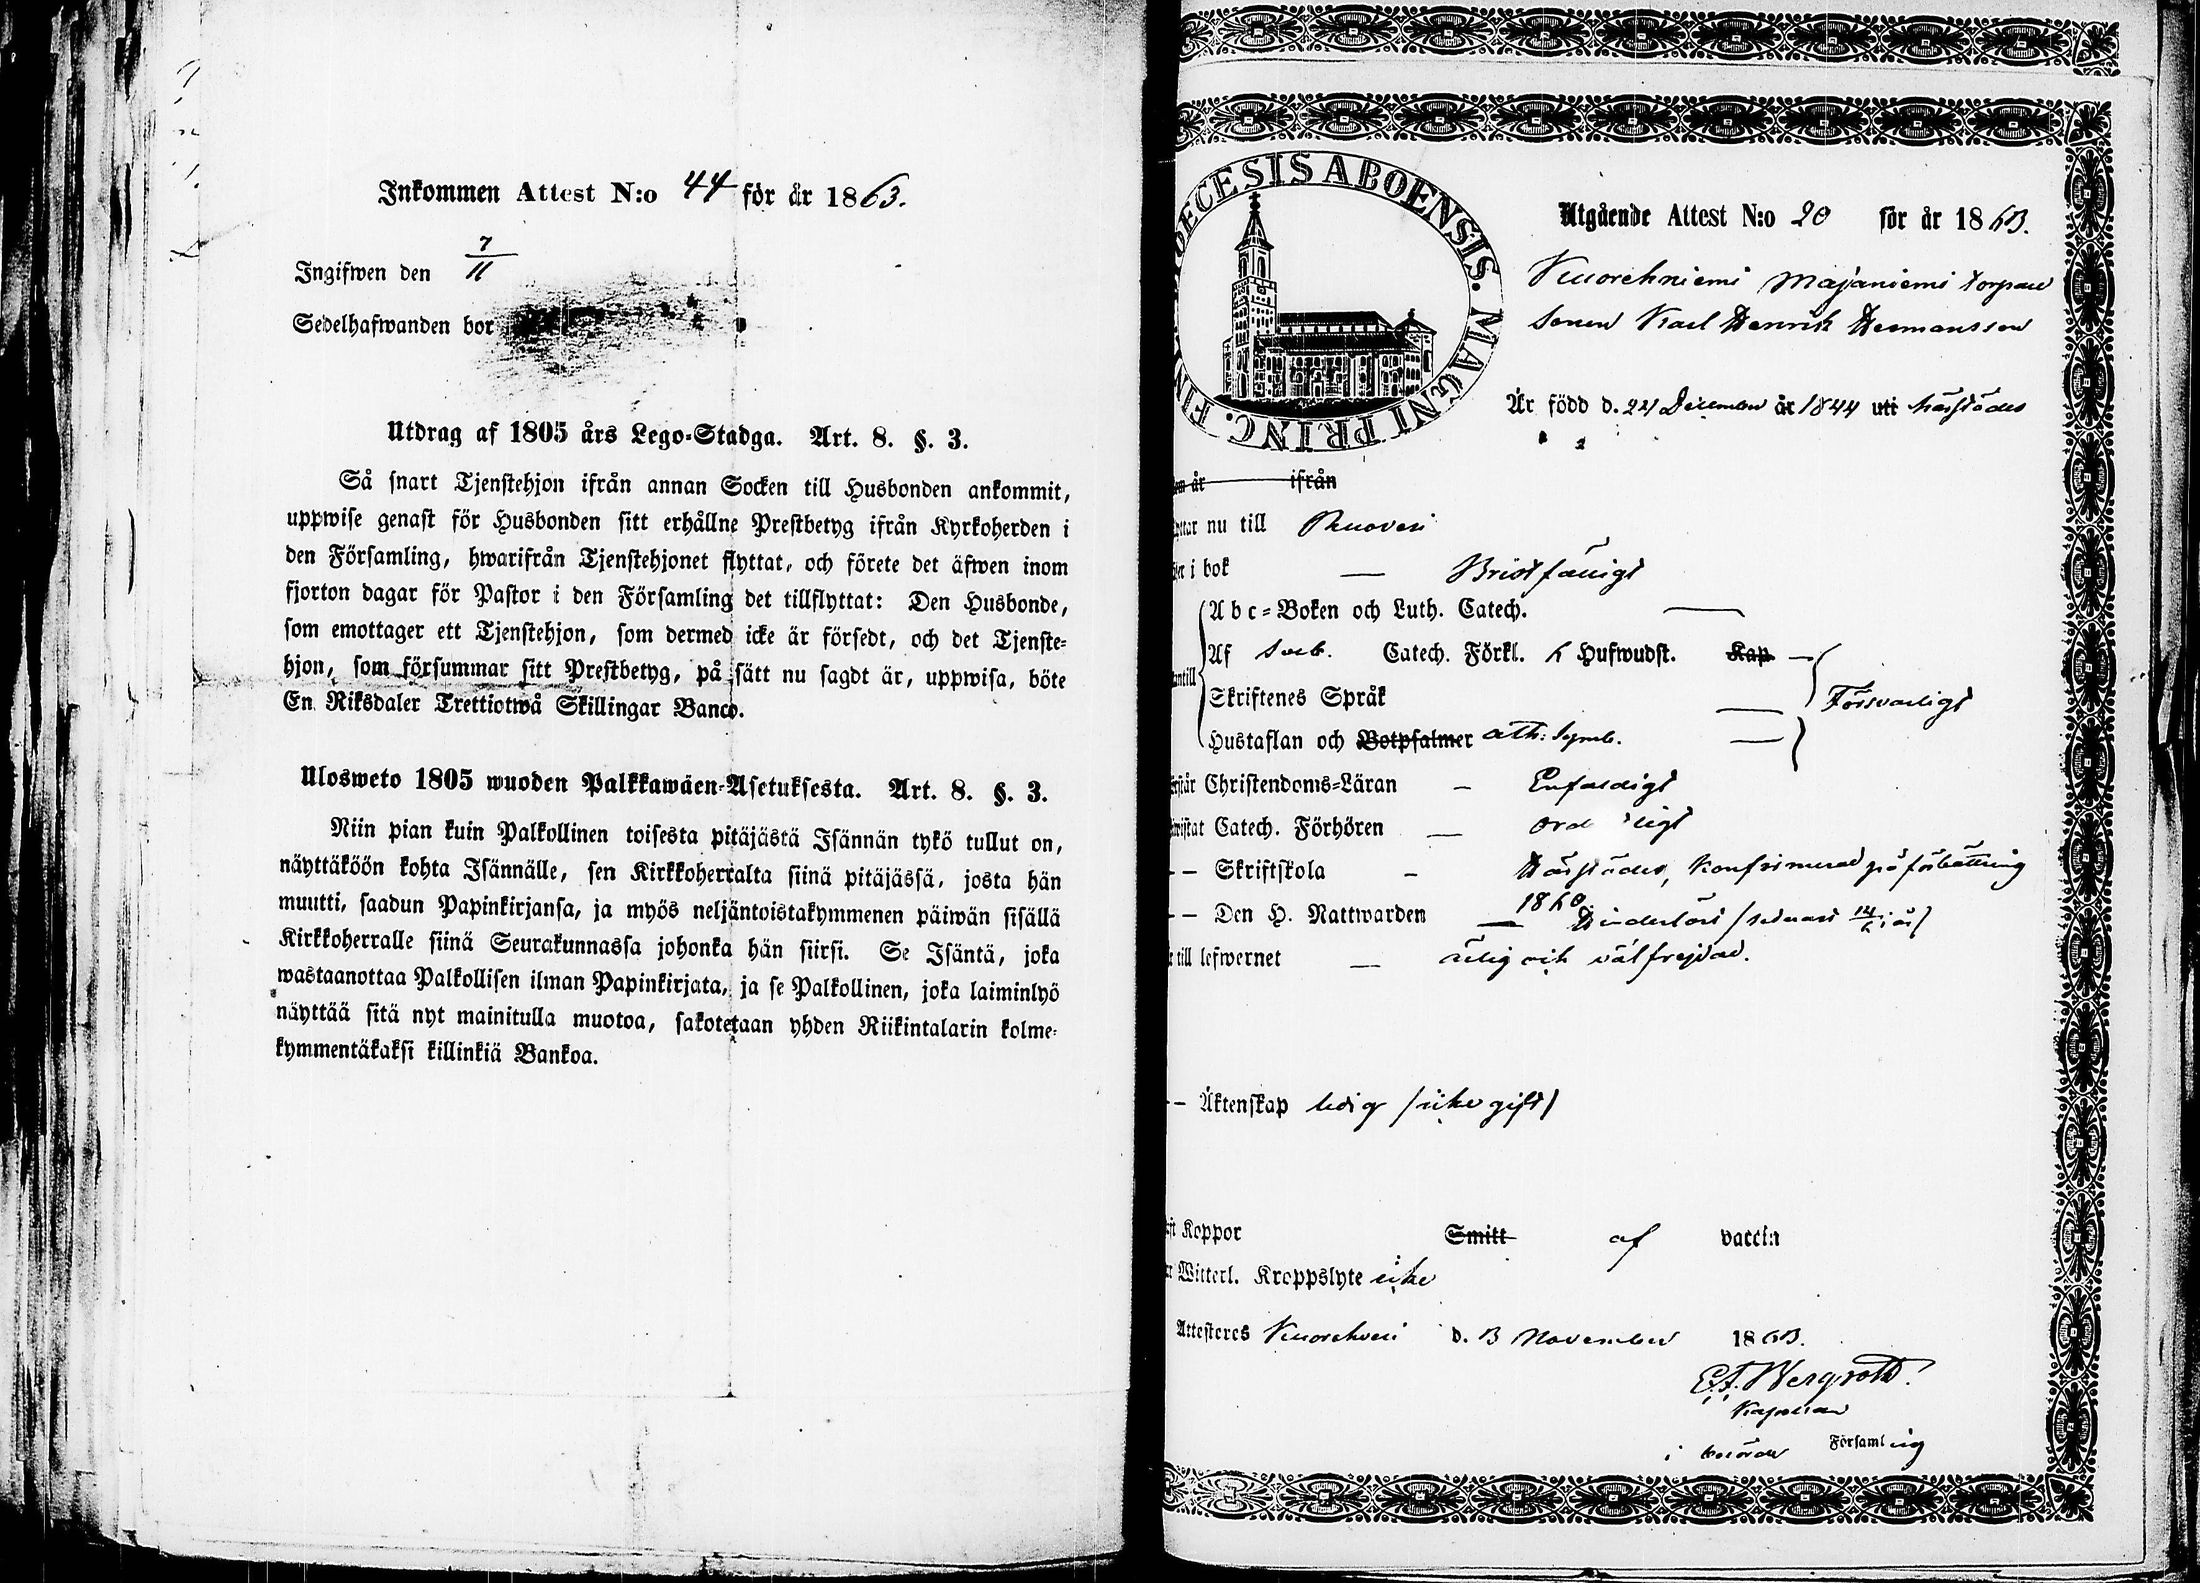 Inkommen Attest N:o 44 för år 1863.
Ingifwen den 7/11
Sedelhafwanden bor
Utdrag af 1805 års Lego-Stadga. Art. 8. §. 3.
Så snart Tjenstehjon ifrån annan Socken till Husbonden ankommit,
uppwise genast för Husbonden sitt erhållne Prestbetyg ifrån Kyrkoherden i
den Församling, hwarifrån Tjenstehjonet flyttat, och förete det äfwen inom
fjorton dagar för Pastor i den Församling det tillflyttat: Den Husbonde,
som emottager ett Tjenstehjon, som dermed icke är försedt, och det Tjenste-
hjon, som försummar sitt Prestbetyg, på sätt nu sagdt är, uppwisa, böte
En Riksdaler Trettiotwå Skillingar Banco.
Ulosweto 1805 wuoden Palkkawäen-Asetuksesta. Art. 8. §. 3.
Niin pian kuin Palkollinen toisesta pitäjästä Isännän tykö tullut on,
näyttäköön kohta Isännälle, sen Kirkkoherralta siinä pitäjässä, josta hän
muutti, saadun Papinkirjansa, ja myös neljäntoistakymmenen päiwän sisällä
Kirkkoherralle siinä Seurakunnassa johonka hän siirsi. Se Isäntä, joka
wastaanottaa Palkollisen ilman Papinkirjata, ja se Palkollinen, joka laiminlyö
näyttää sitä nyt mainitulla muotoa, sakotetaan yhden Riikintalarin kolme-
kymmentäkaksi killinkiä Bankoa.
ECESIS ABOENSIS. MAGNI PRINC. FIN
Utgående Attest N:o 20 för år 1863.
Kuorehniemi Majaniemi torpare
sonen Karl Henrik Hermansson
Är född d. 24 December år 1844 uti härstädes
år ifrån
nu till Ruovesi
i bok — Bristfälligt
Abc-Boken och Luth. Catech. —
Af Sveb. Catech. Förkl. Hufwudst. Kap —
Skriftenes Språk — Försvarligt
Hustaflan och Botpsalmer Ath: Symb. —
Christendoms-Läran — Enfaldigt
Catech. Förhören — ord ligt
-- Skriftskola - Härstädes, Konfirmerad på förbättring
1860.
-- Den H. Nattwarden — Hinderlöst / senast i år /
till lefwernet — ärlig och välfrejdad.
-- Äktenskap ledig / icke gift /
Koppor Smitt af vaccin
Witterl. Kroppslyte icke
Attesteres Kuorehvesi d. 3 November 1863.
E. A. Bergroth.
Kapellan
i berörde Församling